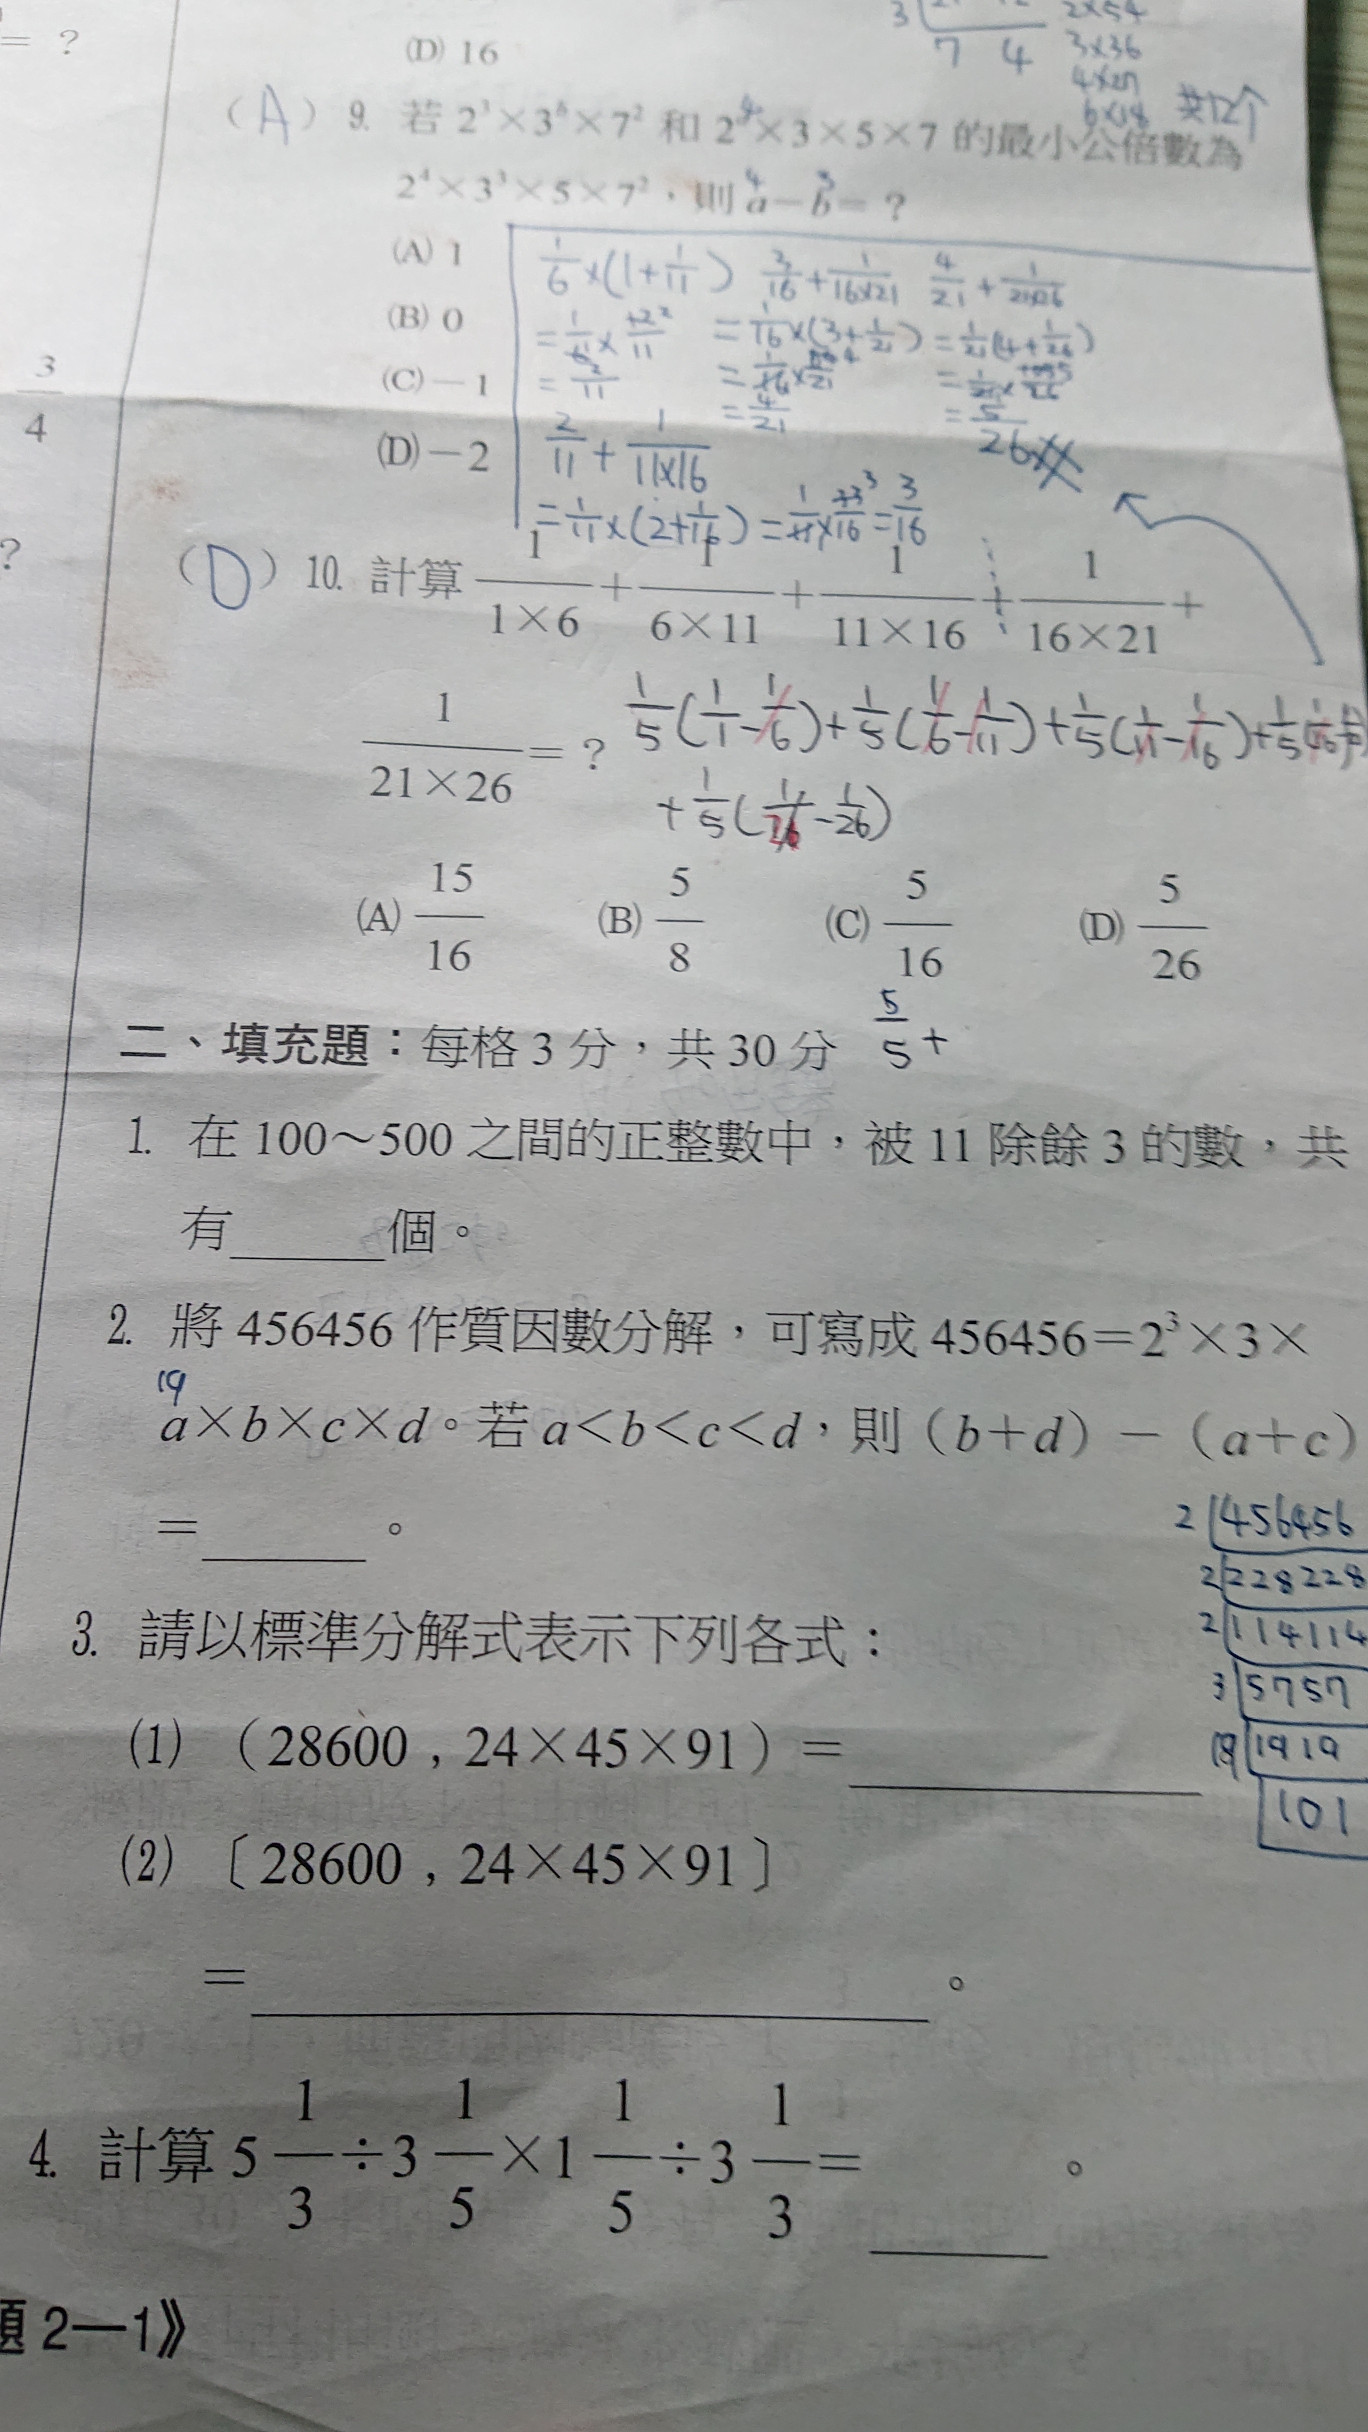 = ?
3/4
?
(D) 16
3
7 4
2×54
3×36
4×27
6×18 共12个
(A) 9. 若 2³×3ᵇ×7² 和 2ᵃ×3×5×7 的最小公倍數為
2⁴×3³×5×7²,則 a－b＝?
4 3
(A) 1
(B) 0
(C) －1
(D) －2
1/6×(1+1/11) 3/16+1/16×21 4/21+1/21×26
=1/6×12/11 =1/16×(3+1/21) =1/21(4+1/26)
=2/11 =4/21 =5/26
2/11+1/11×16
=1/11×(2+1/16)=1/11×33/16=3/16
(D) 10. 計算 1/1×6 + 1/6×11 + 1/11×16 + 1/16×21 +
1/21×26 = ?
1/5(1/1-1/6)+1/5(1/6-1/11)+1/5(1/11-1/16)+1/5
+1/5( -1/26)
(A) 15/16 (B) 5/8 (C) 5/16 (D) 5/26
二、填充題：每格 3 分，共 30 分
5/5 +
1. 在 100～500 之間的正整數中，被 11 除餘 3 的數，共
有______個。
2. 將 456456 作質因數分解，可寫成 456456＝2³×3×
19
a×b×c×d。若 a＜b＜c＜d，則（b＋d）－（a＋c）
＝______。
2 456456
2 228228
2 114114
3 5757
19 1919
101
3. 請以標準分解式表示下列各式：
(1) （28600，24×45×91）＝______
(2) 〔28600，24×45×91〕
＝______。
4. 計算 5 1/3 ÷ 3 1/5 × 1 1/5 ÷ 3 1/3 ＝______。
題 2－1》